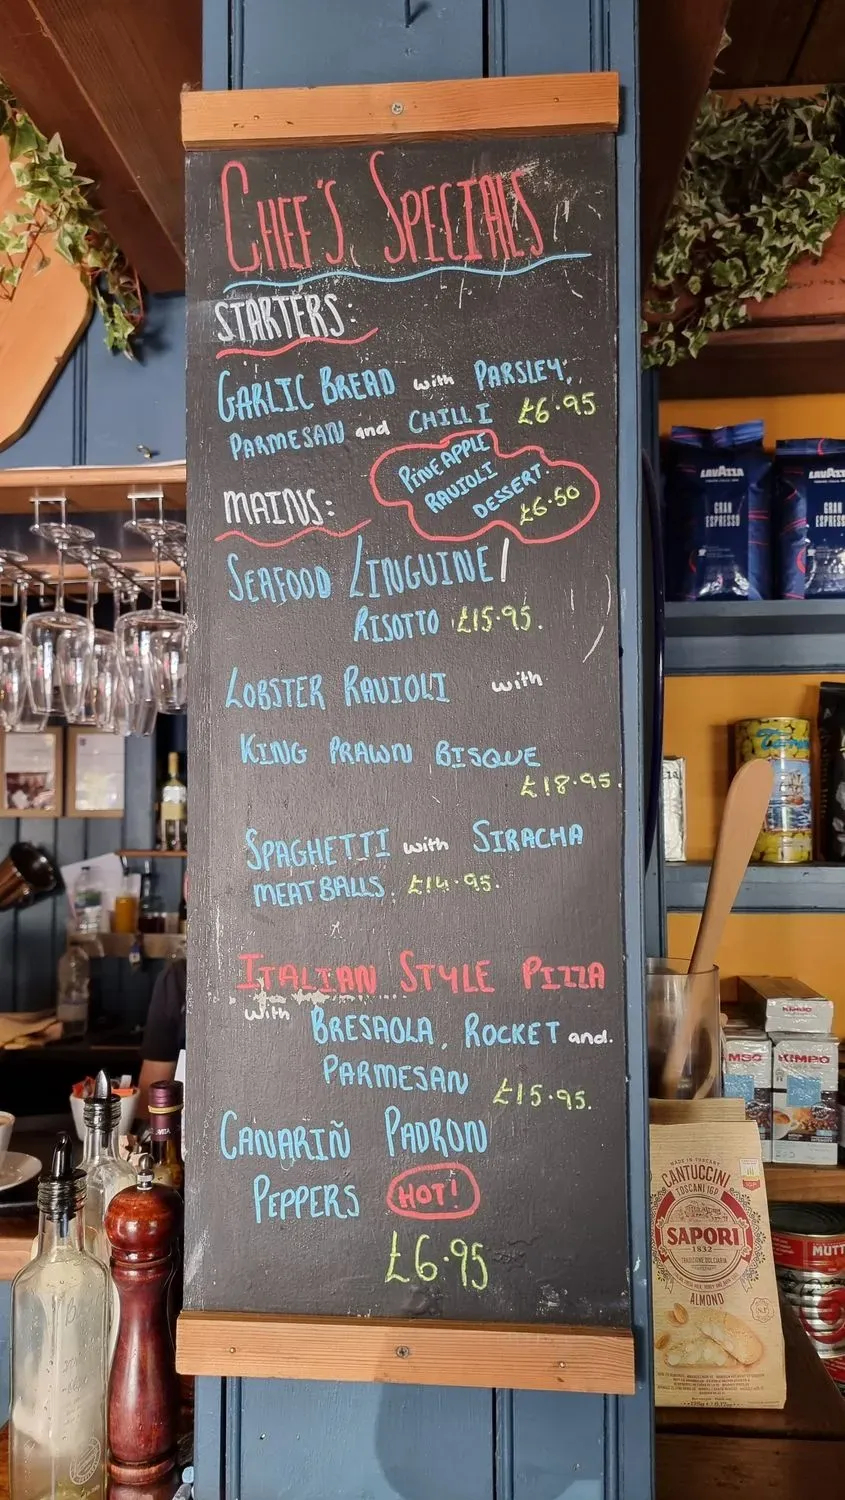 CHEF'S SPECIALS
STARTERS:
GARLIC BREAD with PARSLEY,
PARMESAN and CHILLI £6.95
PINEAPPLE
RAVIOLI
DESSERT.
£6.50
MAINS:
SEAFOOD LINGUINE/
RISOTTO £15.95.
LOBSTER RAVIOLI with
KING PRAWN BISQUE
£18.95.
SPAGHETTI with SIRACHA
MEATBALLS. £14.95.
ITALIAN STYLE PIZZA
with BRESAOLA, ROCKET and.
PARMESAN £15.95.
CANARIÑ PADRON
PEPPERS HOT!
£6.95
LAVAZZA
GRAN
ESPRESSO
LAVAZZA
GRAN
ESPRESS
KIMBO
KIMBO
MADE IN TUSCANY
CANTUCCINI
TOSCANI IGP
SAPORI
1832
ALMOND
MUTT